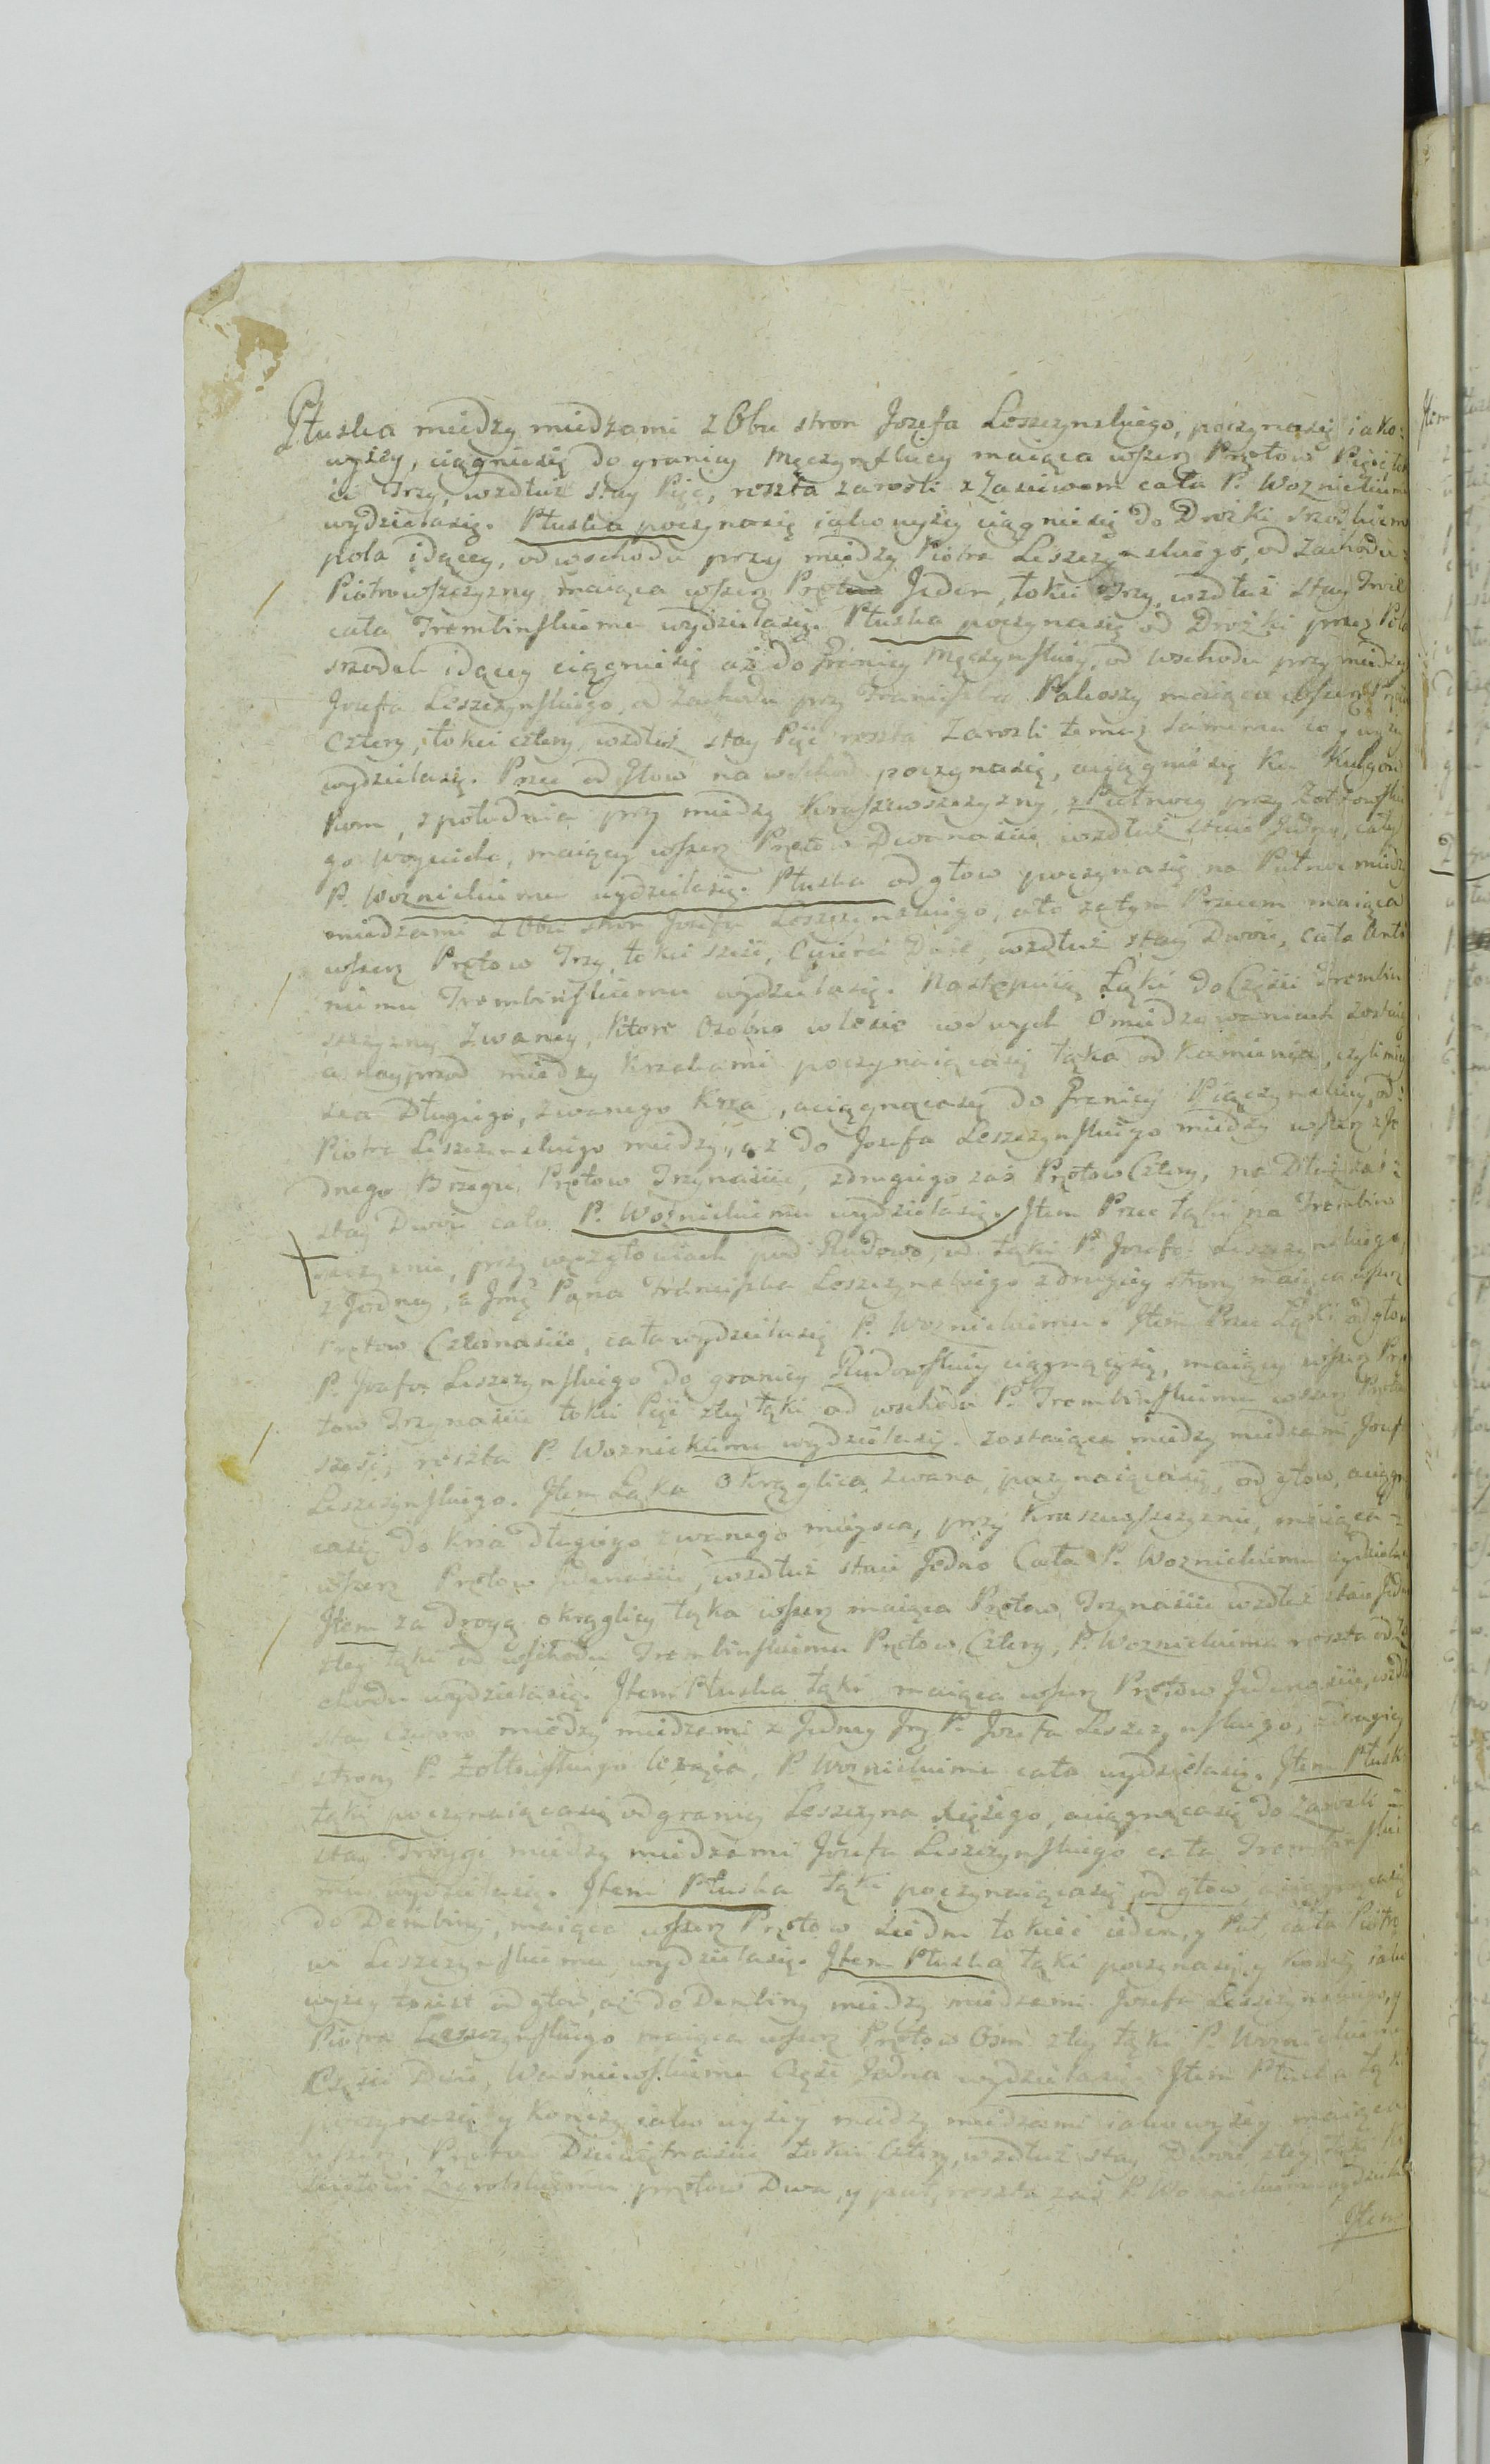 Płuska między miedzami z Obu stron Jozefa Leszczynskiego, poczynasię iako:
wyżey, ciągniesię do granicy Męczynskiey maiąca wszerz Prętow Pięć łok
ci Trzy, wzdłuż stay Pięć, reszta zarosli z Zasiewem cała P. Woznickiemu
wydzielasię. Płuska poczynasię iako wyżey ciągniesię do Drożki srzodkiem
pola idącey, od wschodu przy miedzy Piotra Leszczynskiego, od Zachodu:
Piotrowszczyzny maiąca wszerz Pręt Jeden, łokci Trzy, wzdłuż stay Troie
cała Trembinskiemu wydzielasię. Płuska poczynasię od Drożki przez Pola
srzodek idącey ciągniesię aż do Granicy Męczynskiey, od wschodu przy miedzy
Jozefa Leszczynskiego, od Zachodu przy Franciszka Pakoszy maiąca wszerz
Cztery, łokci cztery, wzdłuż stay Pięć reszta Zarosli temuż samemu co wyżey
wydzielasię. Przec od Głow na wschod poczynasię, aciągniesię ku
kom, z południa przy miedzy Kraszewszczyzny, z Pułnocy przy Zołtowskie
go Woyciecha, maiący wszerz Prętow Dwanascie wzdłuż staie Jedne, cały
P. Woznickiemu wydzielasię. Płuska od głow poczynasię na Pułnoc między
miedzami z Obu stron Jozefa Leszczynskiego, a to zatym Przecem maiąca
wszerz Prętow Trzy, łokci szesc, Cwierci Dwie, wzdłuż stay Dwoie, cała Anto
niemu Trembinskiemu wydzielasię. Następuią Łąki do Części Trembin
sczyzny Zwaney, ktore Osobno w lesie w Omiedzowaniach zostaią
a nayprzod między krzakami poczynaiącasię łąka od kamienia, czyli miey
sca Długiego, zwanego Krza, aciągnącasię do Granicy Pięczynskiey, od:
Piotra Leszczynskiego miedzy, aż do Jozefa Leszczynskiego miedzy wszerz z Je
dnego Brzegu Prętow Trzynascie, zdrugiego zaś Prętow Cztery, na Dłuż zaś:
stay Dwoie cała P. Woznickiemu wydzielasię. Item Przec łąki na Trembin
sczyznie, przy wezgłowiach pod Rudowo, od łąki P. Jozefa Leszczynskiego
z Jedney, a Jmć Pana Franciszka Leszczynskiego z drugiey strony maiąca wszerz
Prętow Czternascie, cała wydzielasię P. Woznickiemu. Item Przec Łąki od głow
P. Jozefa Leszczynskiego do granicy Rudowskiey ciągnącysię, maiący wszerz Prę
tow Trzynascie łokci Pięć z tey łąki od wschodu P. Trembinskiemu wszerz Prętow
szesc, reszta P. Woznickiemu wydzielasię. zostaiąca między miedzami Jozef
Leszczynskiego. Item Łąka Okrąglica zwana, poczynaiącasię, od głow, aciągn
casię do Krza Długiego zwanego mieysca, przy Kraszewszczyznie, maiąca
wszerz Prętow Jedenascie, wzdłuż staie Jedno Cała P. Woznickiemu wydzielasię
Item za drogą okrąglicy łąka wszerz maiąca Prętow Trzynascie wzdłuż staie Jedno
z tey łąki od wschodu Trembinskiemu Prętow Cztery, P. Woznickiemu reszta od Za
chodu wydzielasię. Item Płuska łąki maiąca wszerz Prętow Jedenascie, wzdłuż
stay Czworo między miedzami z Jedney Jmć P. Jozefa Leszczynskiego, z drugiey
strony P. Żołtowskiego leżąca, P. Woznickiemu cała wydzielasię. Item Płuska
łąki poczynaiącasię od granicy Leszczyna Xiężego, aciągnącasię do zarosli
stay Troygi między miedzami Jozefa Leszczynskiego cała Trembinskie
mu wydzielasię. Item Płuska łąki poczynaiącasię od głow, aciągnącasię
do Dembiny, maiąca wszerz Prętow siedm łokiec ieden, y Puł, cała Piotro
wi Leszczynskiemu wydzielasię. Item Płuska łąki poczynasię, y konczy iako
wyżey toiest od głow, aż do Dembiny między miedzami Jozefa Leszczynskiego, y
Piotra Leszczynskiego maiąca wszerz Prętow Osm z tey łąki P. Woznickiemu
Części Dwie, Wasniewskiemu Część Jedna wydzielasię. Item Płuska łąki
poczynasię y konczy iako wyżey między miedzami iako wyżey maiąca
wszerz, Prętow Dziewiętnascie łokci Cztery, wzdłuż stay Dwoie, z tey łąki
Zagrobskiemu prętow Dwa, y puł, reszta zaś P. Woznickiemu wydziela
Item